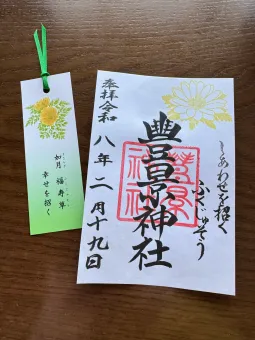 しあわせを招く
ふくじゅそう
豐景神社
奉拝令和
八年二月十九日
如月 福寿草
幸せを招く